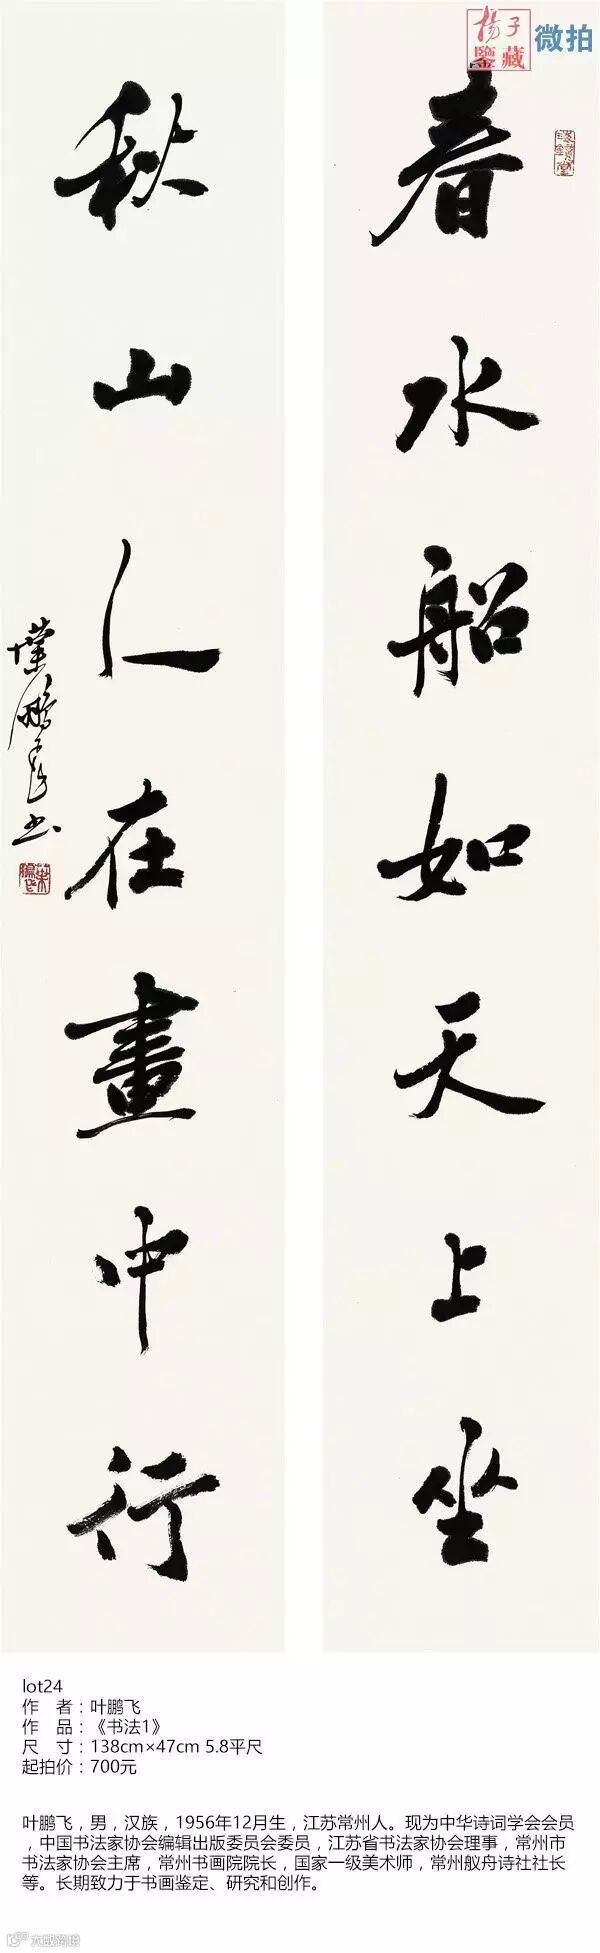 揚子
鑒藏
微拍
春水船如天上坐
秋山人在畫中行
葉鹏飞书
lot24
作　者：叶鹏飞
作　品：《书法1》
尺　寸：138cm×47cm 5.8平尺
起拍价：700元
叶鹏飞，男，汉族，1956年12月生，江苏常州人。现为中华诗词学会会员
，中国书法家协会编辑出版委员会委员，江苏省书法家协会理事，常州市
书法家协会主席，常州书画院院长，国家一级美术师，常州舣舟诗社社长
等。长期致力于书画鉴定、研究和创作。
大威跨境